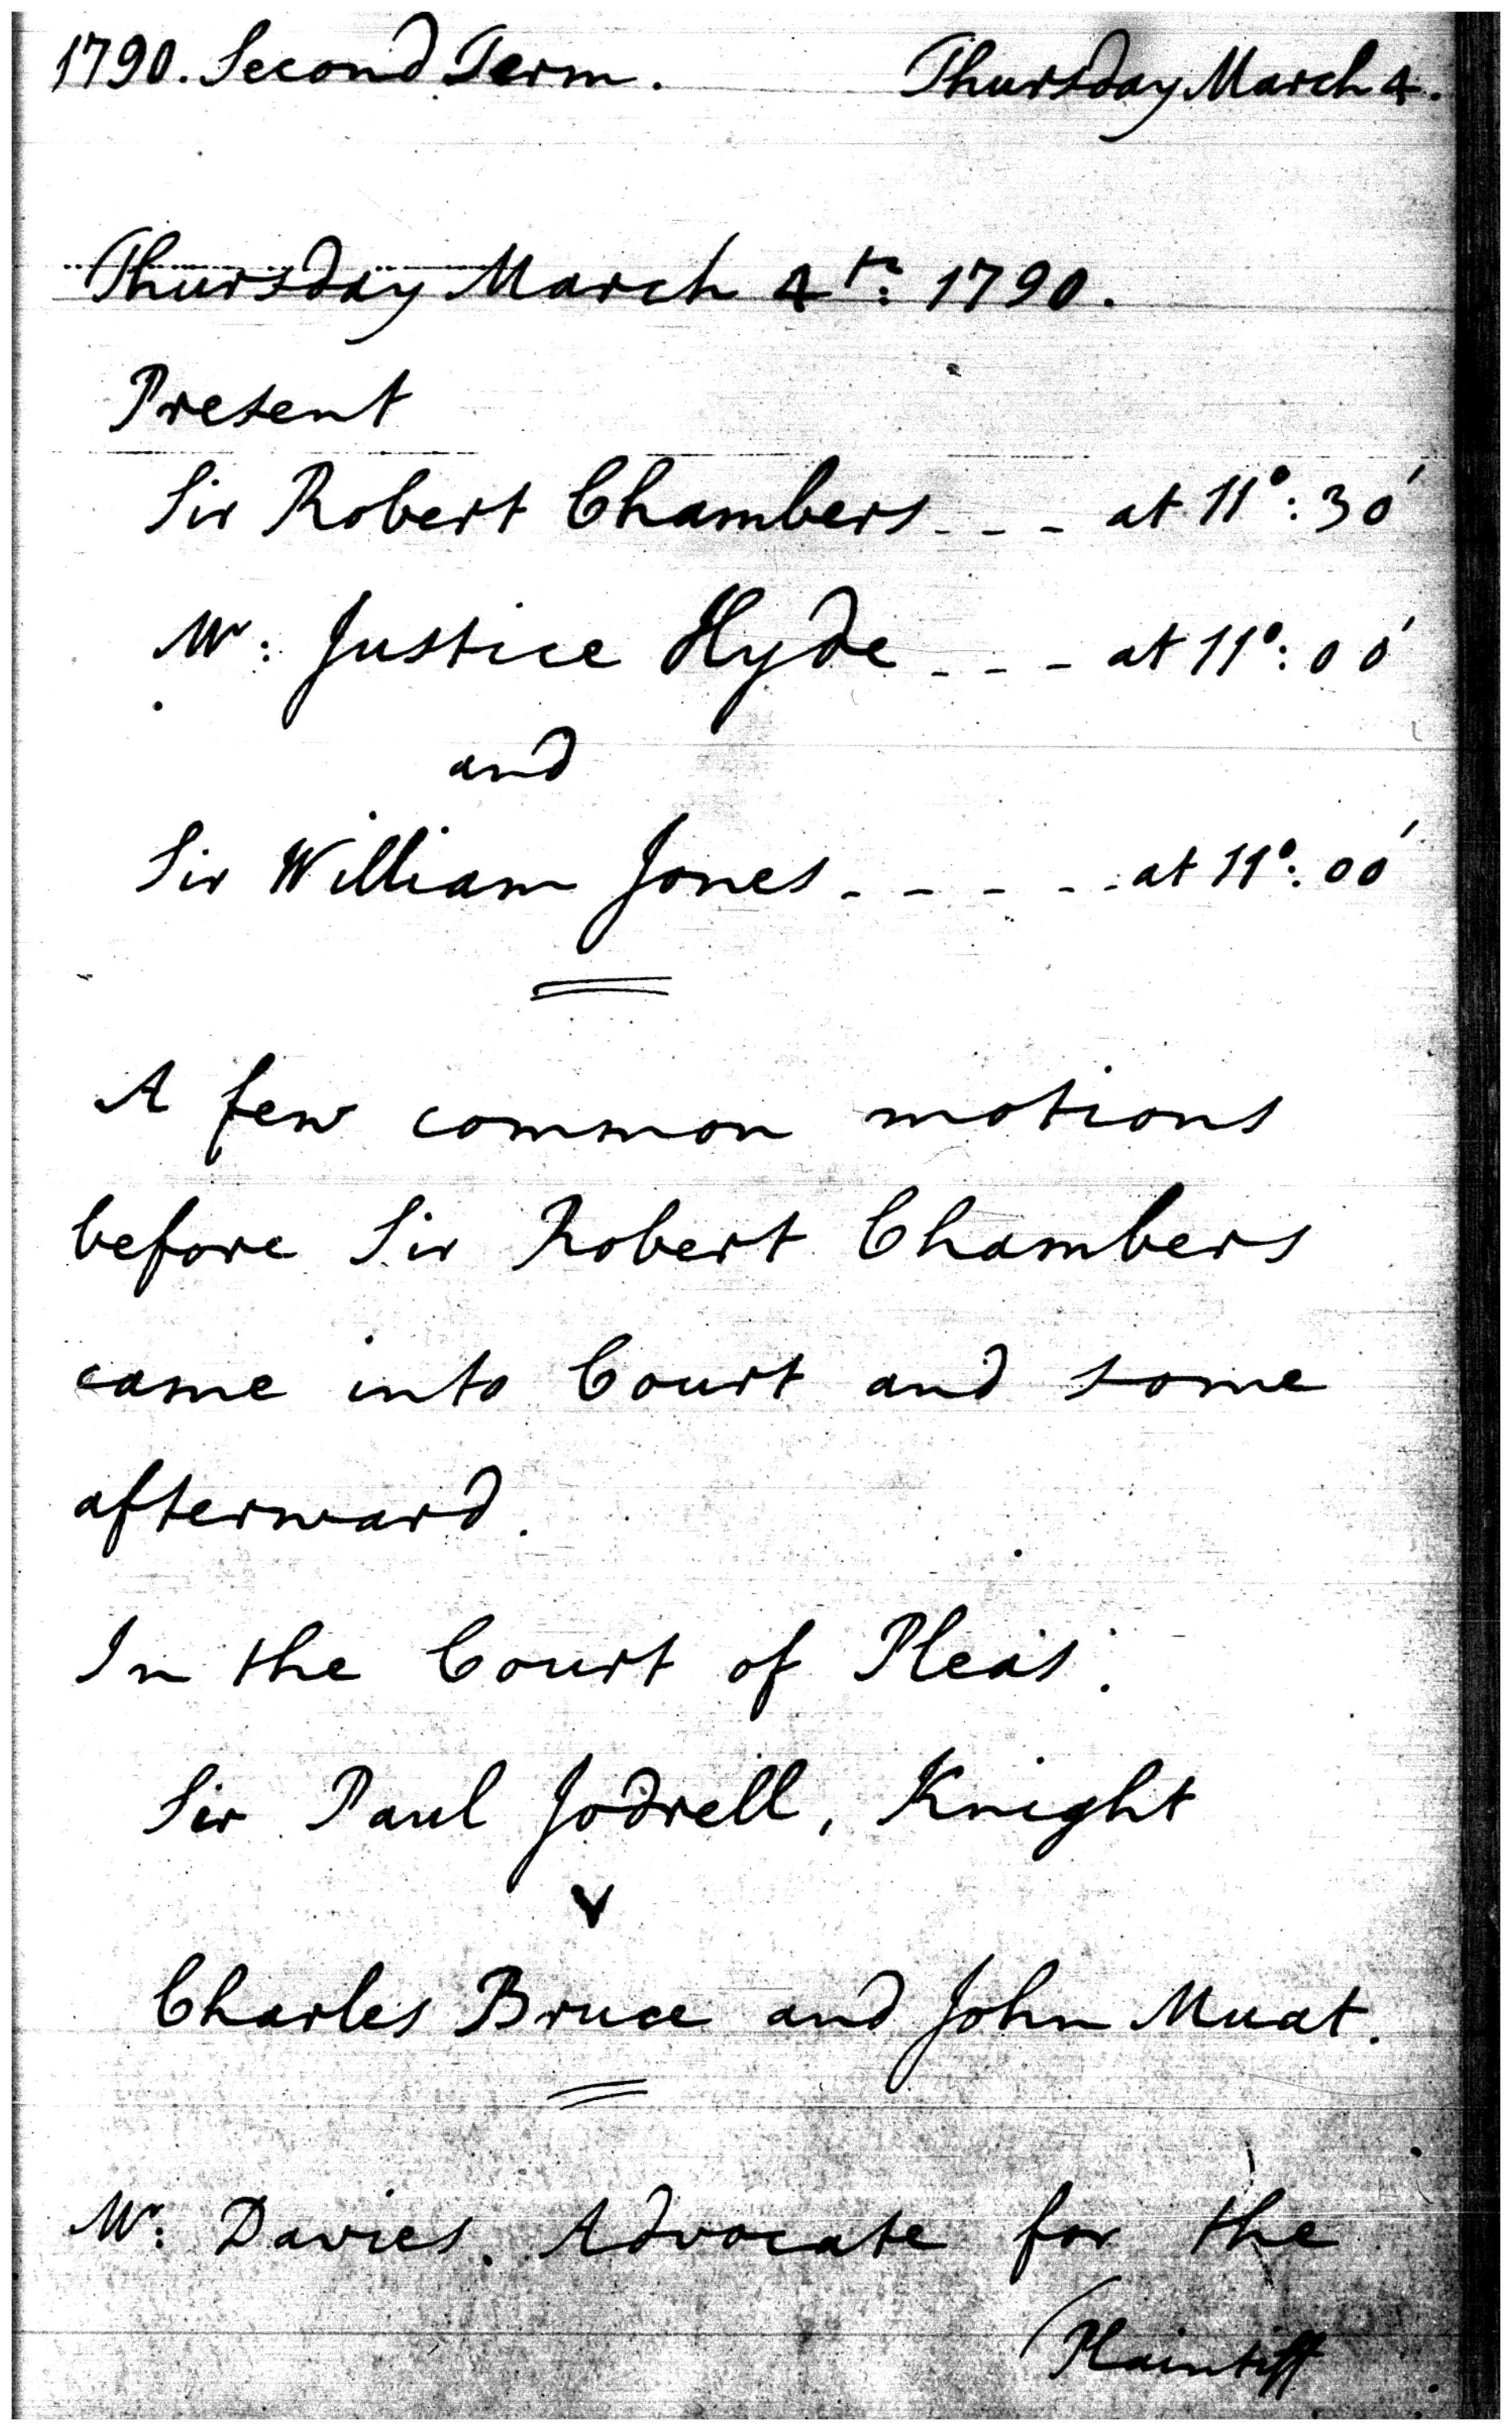 1790. Second Term. Thursday March 4.
Thursday March 4th: 1790.
Present
Sir Robert Chambers - - - at 11°: 30'
Mr: Justice Hyde - - - at 11°: 00'
and
Sir William Jones - - - - - at 11°: 00'
A few common motions
before Sir Robert Chambers
came into Court and some
afterward.
In the Court of Pleas.
Sir Paul Jodrell, Knight
v
Charles Bruce and John Muat.
Mr: Davies. Advocate for the
Plaintiff